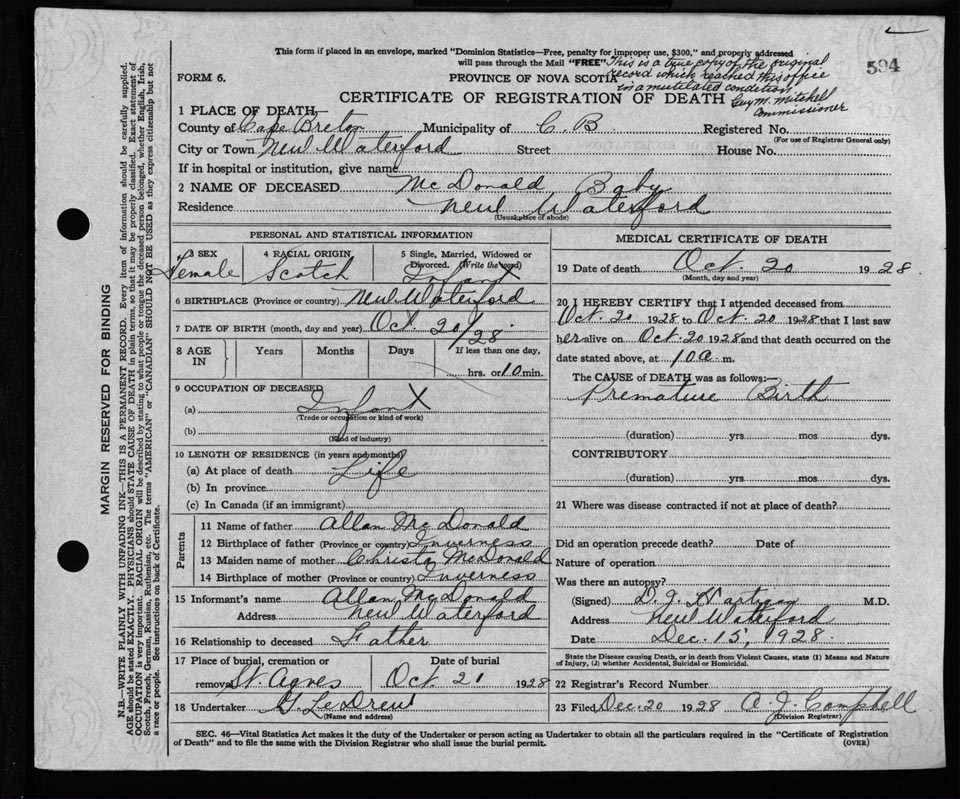 This form if placed in an envelope, marked "Dominion Statistics—Free, penalty for improper use, $300," and properly addressed
will pass through the Mail "FREE"
This is a true copy of the original
record which reached this office
in a mutilated condition
Guy M. Mitchell
Commissioner
594
FORM 6.
PROVINCE OF NOVA SCOTIA
CERTIFICATE OF REGISTRATION OF DEATH
1 PLACE OF DEATH—
County of Cape Breton Municipality of C. B. Registered No.
(For use of Registrar General only)
City or Town New Waterford Street House No.
If in hospital or institution, give name
2 NAME OF DECEASED McDonald Baby
Residence New Waterford
(Usual place of abode)
PERSONAL AND STATISTICAL INFORMATION
3 SEX Female
4 RACIAL ORIGIN Scotch
5 Single, Married, Widowed or
Divorced. (Write the word)
Infant
6 BIRTHPLACE (Province or country) New Waterford
7 DATE OF BIRTH (month, day and year) Oct. 20/28.
8 AGE IN Years Months Days If less than one day,
hrs. or 10 min.
9 OCCUPATION OF DECEASED
(a) Infant
(Trade or occupation or kind of work)
(b)
(Kind of industry)
10 LENGTH OF RESIDENCE (in years and months)
(a) At place of death Life
(b) In province
(c) In Canada (if an immigrant)
Parents
11 Name of father Allan McDonald
12 Birthplace of father (Province or country) Inverness
13 Maiden name of mother Christy McDonald
14 Birthplace of mother (Province or country) Inverness
15 Informant's name Allan McDonald
Address New Waterford
16 Relationship to deceased Father
17 Place of burial, cremation or removal St. Agnes
Date of burial Oct 21 1928
18 Undertaker G. LeDrew
(Name and address)
MEDICAL CERTIFICATE OF DEATH
19 Date of death Oct. 20 1928.
(Month, day and year)
20 I HEREBY CERTIFY that I attended deceased from
Oct. 20 1928 to Oct. 20 1928 that I last saw
her alive on Oct. 20 1928 and that death occurred on the
date stated above, at 10 a. m.
The CAUSE of DEATH was as follows:—
Premature Birth
(duration) yrs mos dys.
CONTRIBUTORY
(duration) yrs mos dys.
21 Where was disease contracted if not at place of death?
Did an operation precede death? Date of
Nature of operation
Was there an autopsy?
(Signed) D. J. Hartigan M.D.
Address New Waterford
Date Dec. 15, 1928.
State the Disease causing Death, or in death from Violent Causes, state (1) Means and Nature
of Injury, (2) whether Accidental, Suicidal or Homicidal.
22 Registrar's Record Number
23 Filed Dec. 20 1928 A. J. Campbell
(Division Registrar)
SEC. 46—Vital Statistics Act makes it the duty of the Undertaker or person acting as Undertaker to obtain all the particulars required in the "Certificate of Registration
of Death" and to file the same with the Division Registrar who shall issue the burial permit.
(OVER)
MARGIN RESERVED FOR BINDING
N.B.—WRITE PLAINLY WITH UNFADING INK—THIS IS A PERMANENT RECORD. Every item of information should be carefully supplied.
AGE should be stated EXACTLY. PHYSICIANS should STATE CAUSE OF DEATH in plain terms, so that it may be properly classified. Exact statement of
OCCUPATION is very important. RACIAL ORIGIN will be described by stating to what people or tongue the deceased person belonged, whether English, Irish,
Scotch, French, German, Russian, Ruthenian, etc. The terms "AMERICAN" or "CANADIAN" SHOULD NOT BE USED as they express citizenship but not
a race or people. See instructions on back of Certificate.